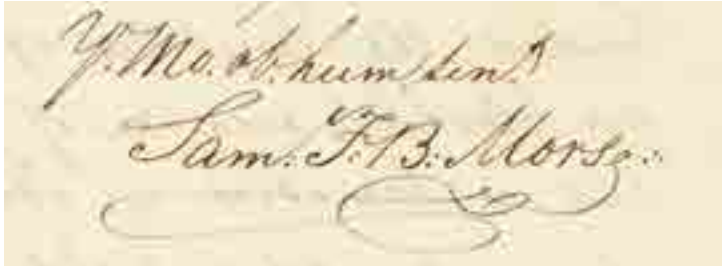 Yr. Mo. ob. hum servt
Sam. F. B. Morse.